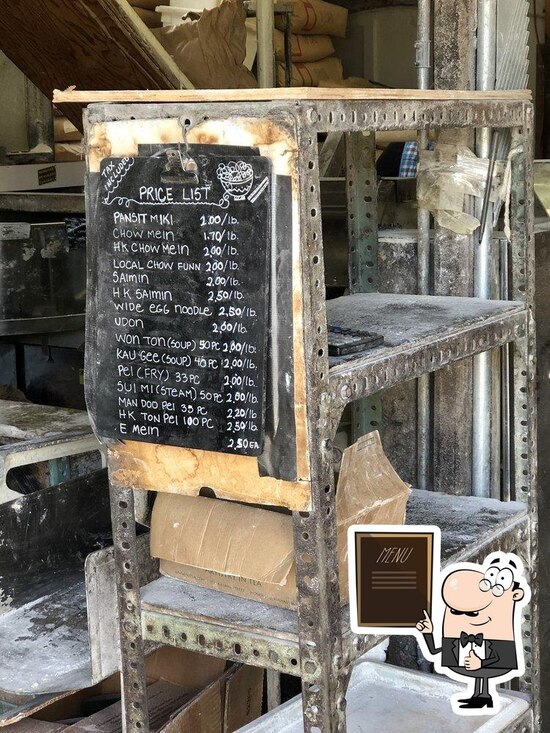 TAX
INCLUDED
PRICE LIST
PANSIT MIKI 2.00/lb.
CHOW MEIN 1.70/lb.
HK CHOW MEIN 2.00/lb.
LOCAL CHOW FUNN 2.00/lb.
SAIMIN 2.00/lb.
HK SAIMIN 2.50/lb.
WIDE EGG NOODLE 2.50/lb.
UDON 2.00/lb.
WON TON (SOUP) 50 PC 2.00/lb.
KAU GEE (SOUP) 45 PC 2.00/lb.
PEI (FRY) 33 PC 2.00/lb.
SUI MI (STEAM) 50 PC 2.00/lb.
MAN DOO PEI 35 PC 2.20/lb.
HK TON PEI 100 PC 2.50/lb.
E MEIN 2.50 EA
MENU